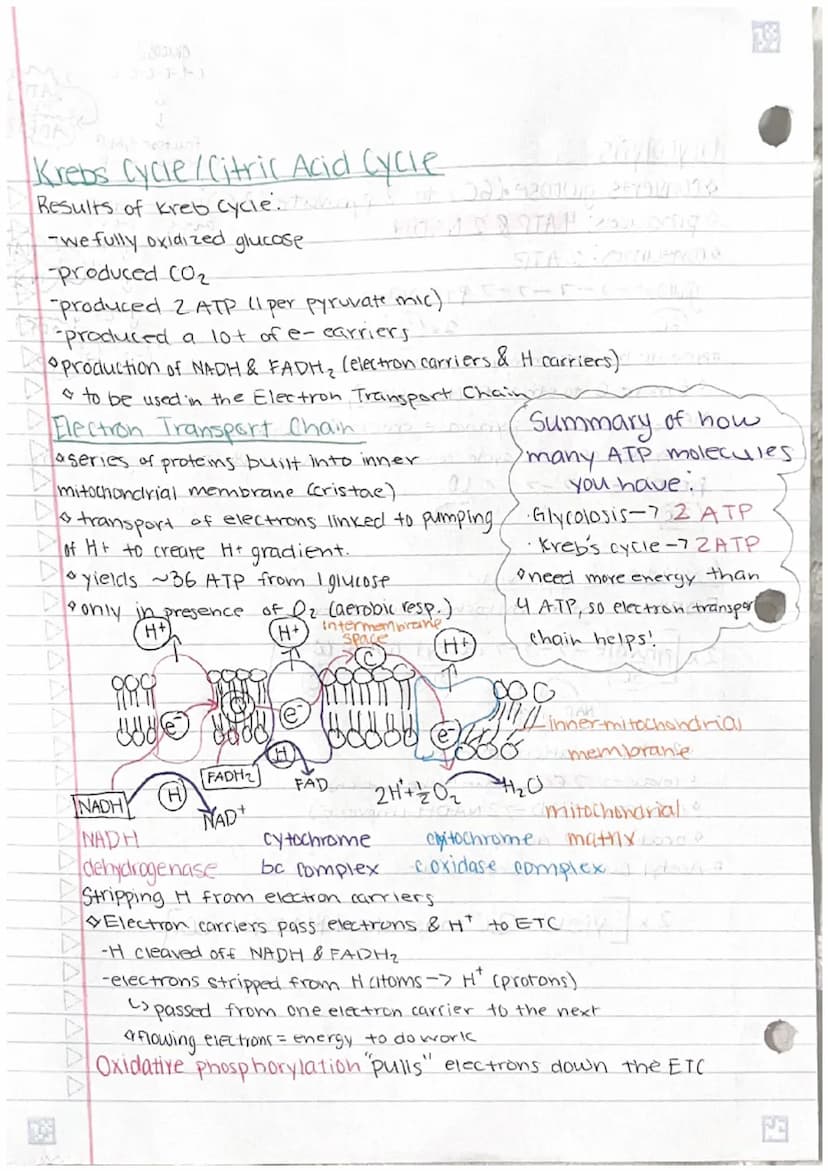 Krebs Cycle/Citric Acid Cycle
Results of Kreb Cycle:
-we fully oxidized glucose
-produced CO2
-produced 2 ATP (1 per pyruvate mlc)
-produced a lot of e- carriers
◇production of NADH & FADH2 (electron carriers & H carriers)
◇ to be used in the Electron Transport Chain
Electron Transport Chain
◇series of proteins built into inner
mitochondrial membrane (cristae)
◇ transport of electrons linked to pumping
of H+ to create H+ gradient.
◇yields ~36 ATP from 1 glucose
◇only in presence of O2 (aerobic resp.)
Summary of how
many ATP molecules
you have:
·Glycolosis-> 2 ATP
·Kreb's cycle -> 2ATP
◇need more energy than
4 ATP, so electron transpor
chain helps!
H+
H+
intermembrane
space
C
H+
Q
e-
e-
e-
inner mitochondrial
membrane
H
FADH2
FAD
NADH
H
NAD+
2H++½O2
H2O
mitochondrial
matrix
NADH
dehydrogenase
cytochrome
bc complex
cytochrome
c oxidase complex
Stripping H from electron carriers
◇Electron carriers pass electrons & H+ to ETC
-H cleaved off NADH & FADH2
-electrons stripped from H atoms -> H+ (protons)
↳ passed from one electron carrier to the next
◇flowing electrons = energy to do work
Oxidative phosphorylation "pulls" electrons down the ETC